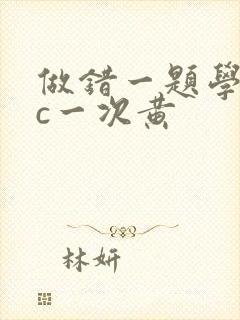 做錯一題學
c一次黃
林妍